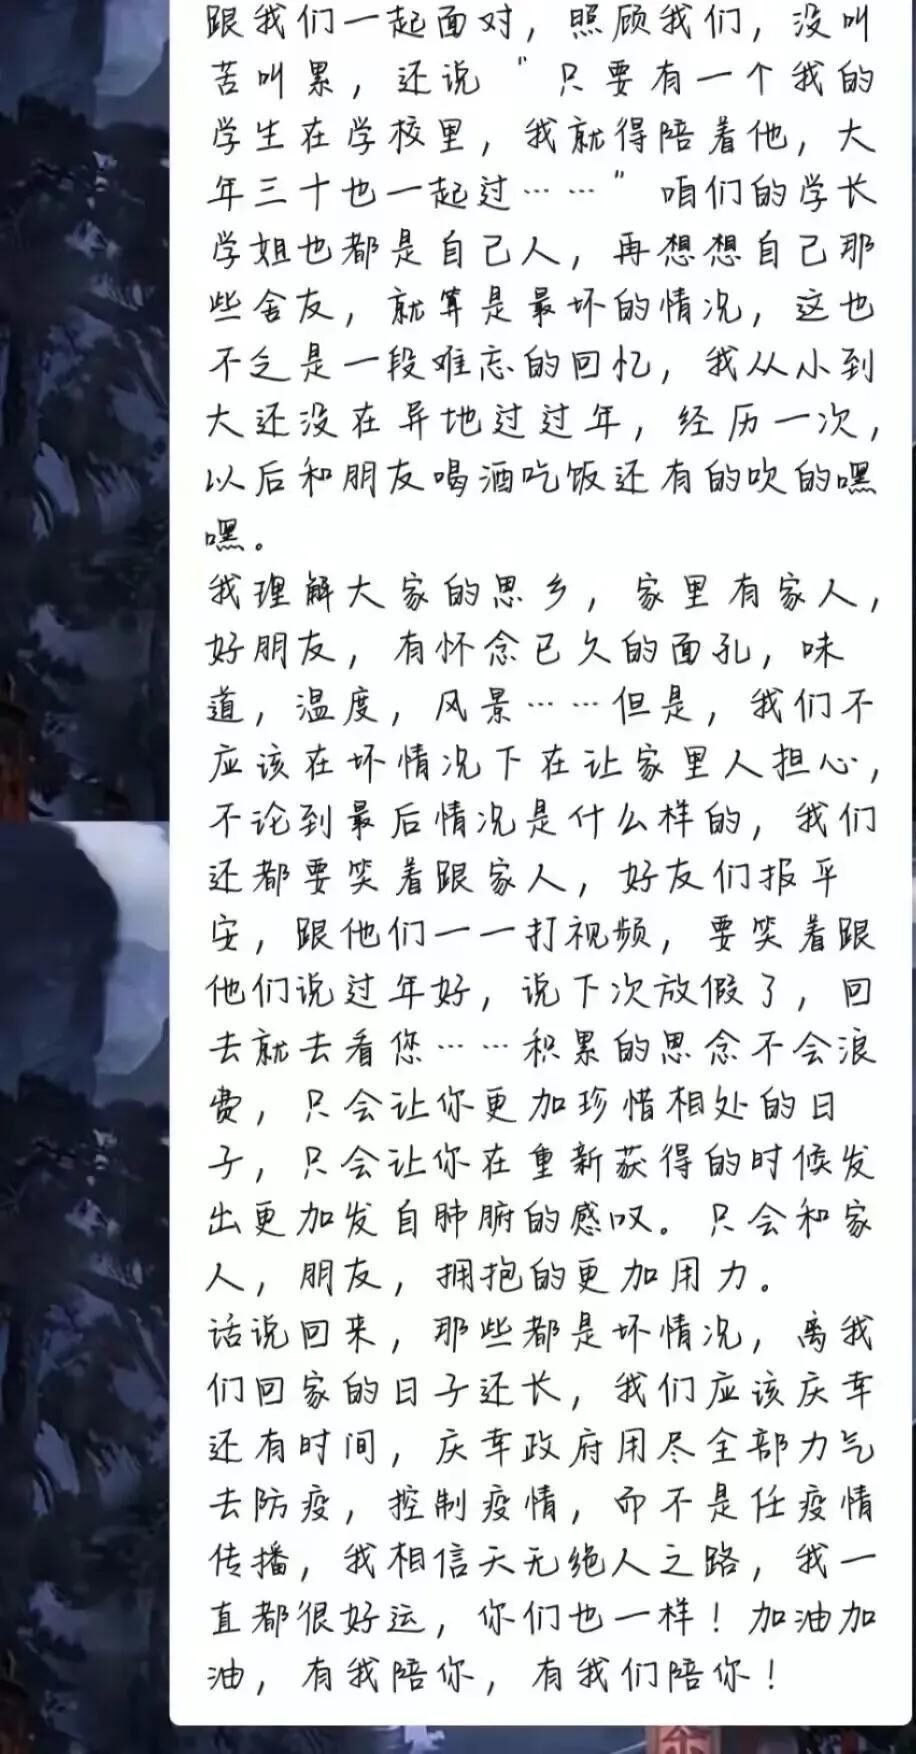 跟我们一起面对，照顾我们，没叫
苦叫累，还说“只要有一个我的
学生在学校里，我就得陪着他，大
年三十也一起过……”咱们的学长
学姐也都是自己人，再想想自己那
些舍友，就算是最坏的情况，这也
不乏是一段难忘的回忆，我从小到
大还没在异地过过年，经历一次，
以后和朋友喝酒吃饭还有的吹的嘿
嘿。
我理解大家的思乡，家里有家人，
好朋友，有怀念已久的面孔，味
道，温度，风景……但是，我们不
应该在坏情况下在让家里人担心，
不论到最后情况是什么样的，我们
还都要笑着跟家人，好友们报平
安，跟他们一一打视频，要笑着跟
他们说过年好，说下次放假了，回
去就去看您……积累的思念不会浪
费，只会让你更加珍惜相处的日
子，只会让你在重新获得的时候发
出更加发自肺腑的感叹。只会和家
人，朋友，拥抱的更加用力。
话说回来，那些都是坏情况，离我
们回家的日子还长，我们应该庆幸
还有时间，庆幸政府用尽全部力气
去防疫，控制疫情，而不是任疫情
传播，我相信天无绝人之路，我一
直都很好运，你们也一样！加油加
油，有我陪你，有我们陪你！